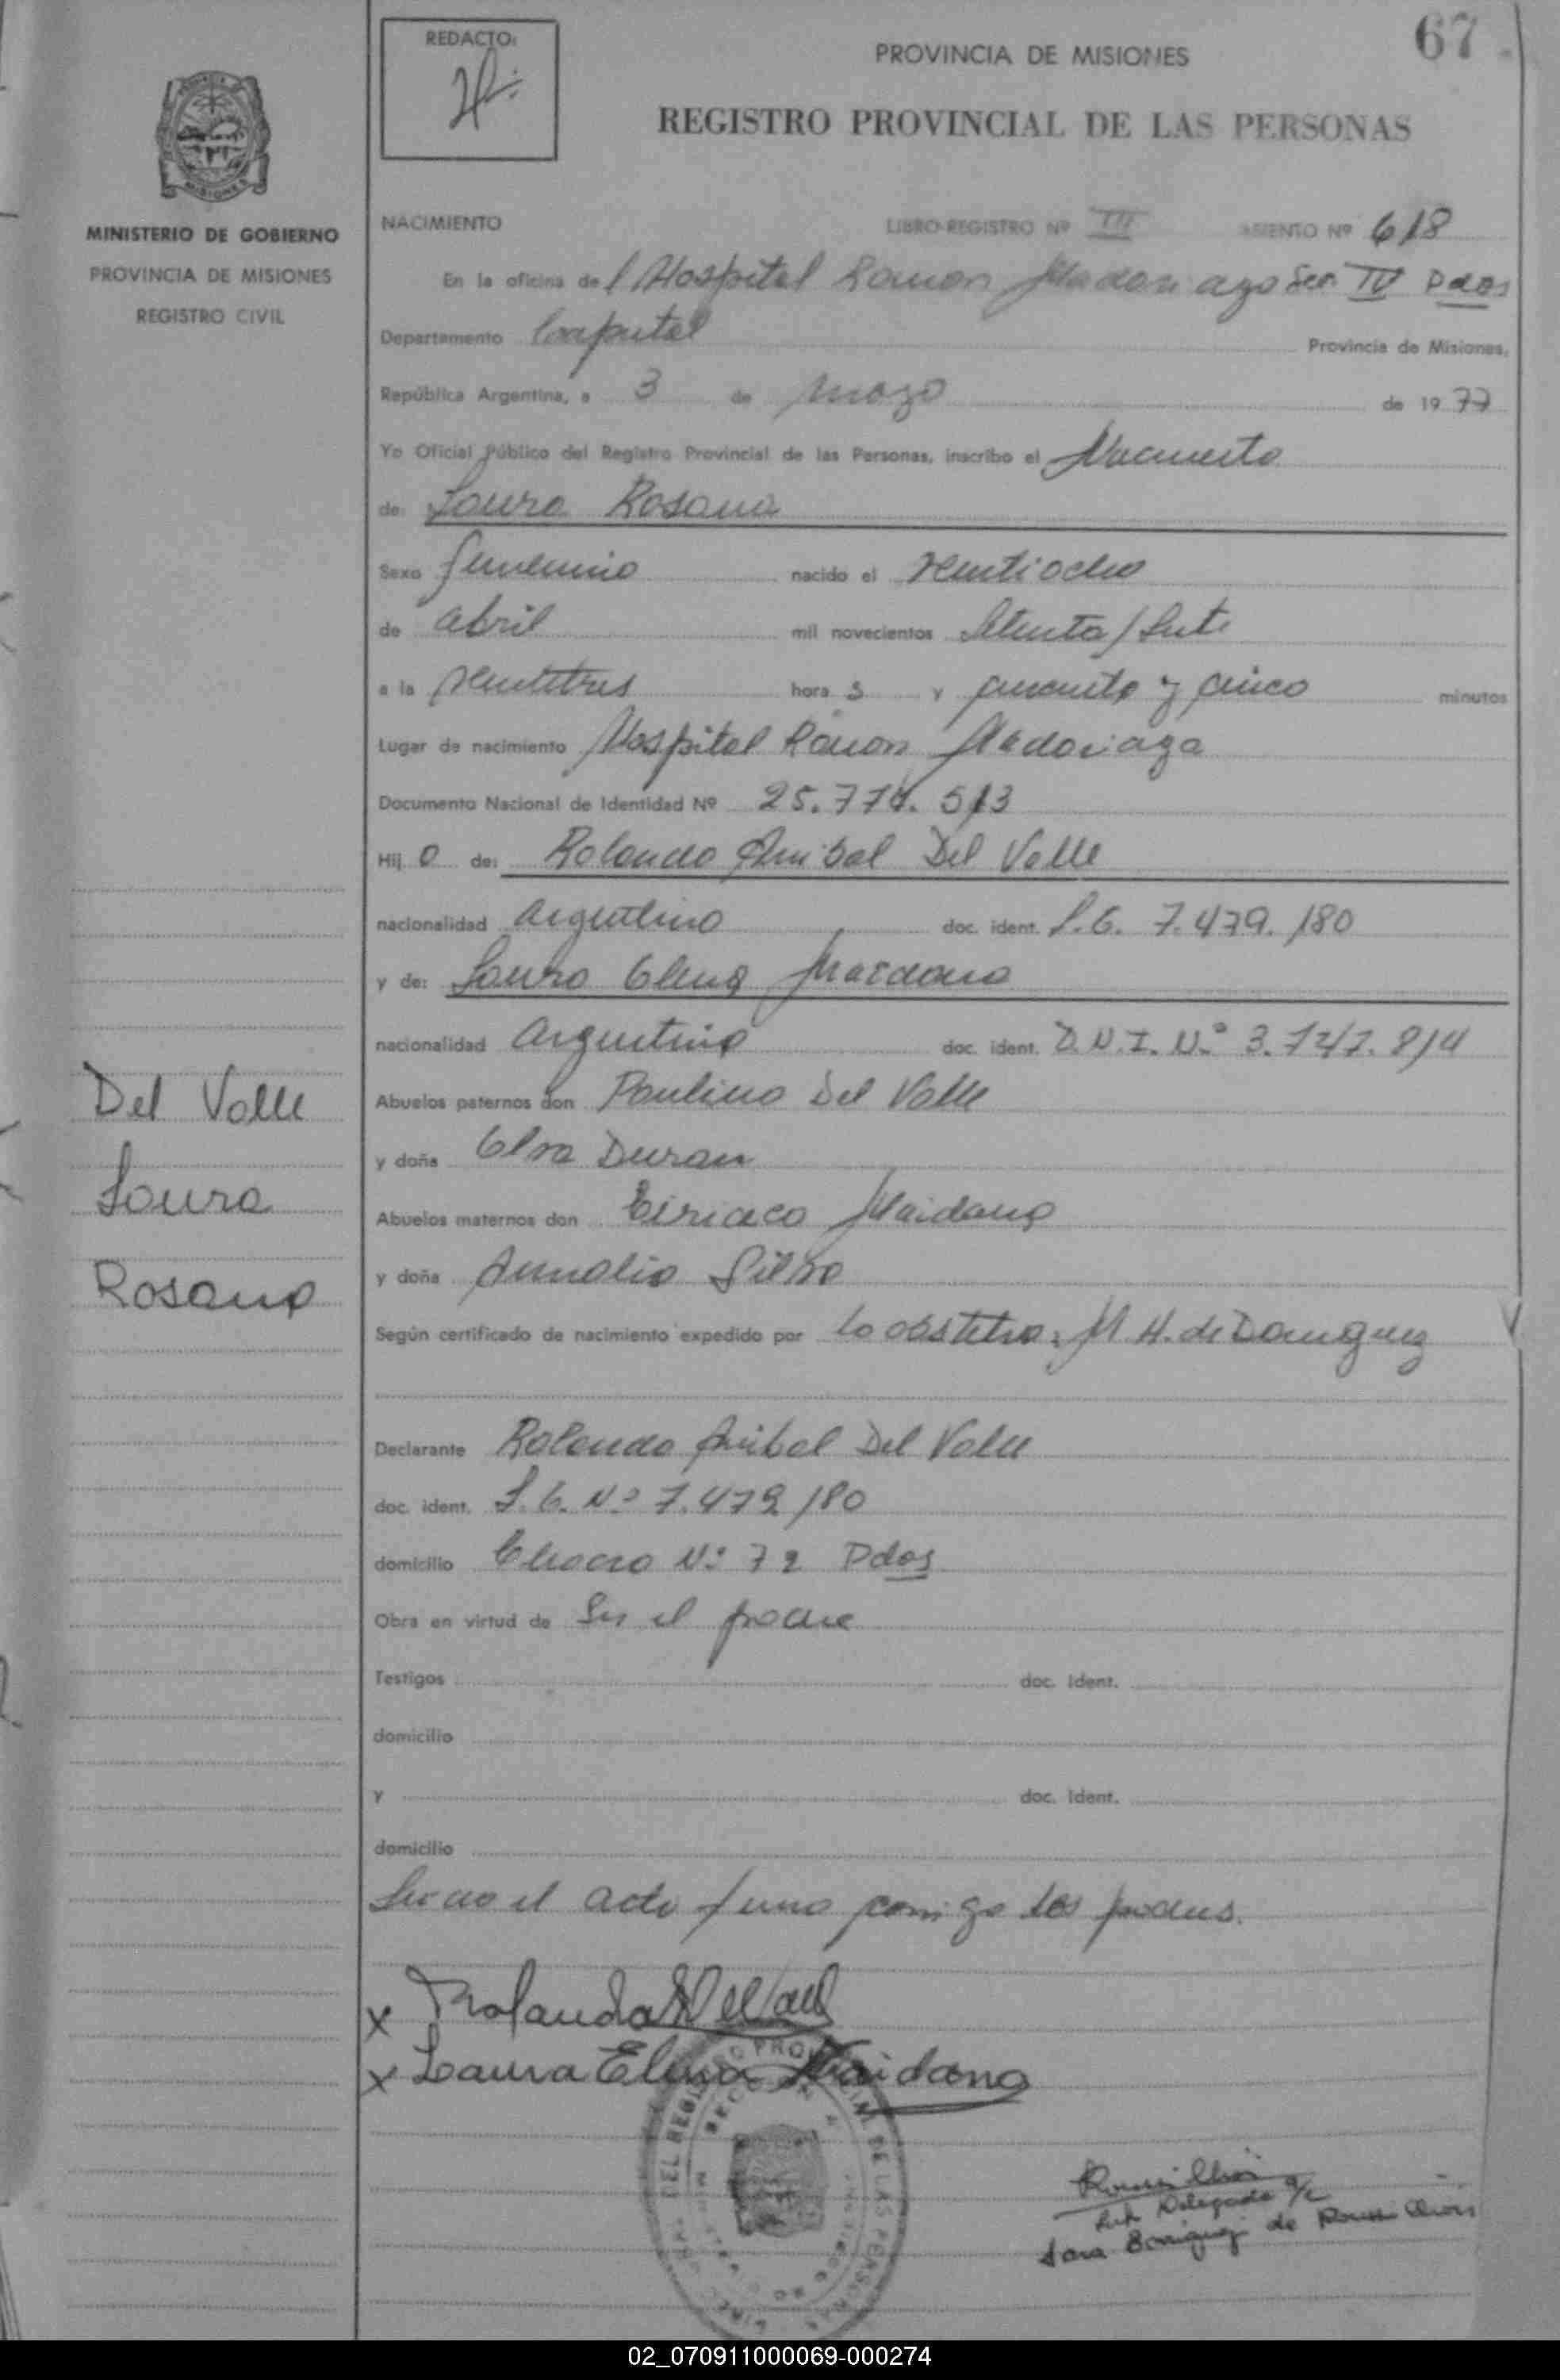 67
REDACTO:
PROVINCIA DE MISIONES
REGISTRO PROVINCIAL DE LAS PERSONAS
MINISTERIO DE GOBIERNO
PROVINCIA DE MISIONES
REGISTRO CIVIL
NACIMIENTO LIBRO-REGISTRO Nº III ASIENTO Nº 618
En la oficina del Hospital Ramon Madariaga Sec. IV Pdas
Departamento Capital Provincia de Misiones,
República Argentina, a 3 de Mayo de 1977
Yo Oficial Público del Registro Provincial de las Personas, inscribo el Nacimiento
de: Laura Rosana
Sexo femenino nacido el Veintiocho
de abril mil novecientos Setenta/Siete
a la Veintitres hora s y cuarenta y cinco minutos
Lugar de nacimiento Hospital Ramon Madariaga
Documento Nacional de Identidad Nº 25.774.513
Hij o de: Rolando Anibal Del Valle
nacionalidad argentino doc. ident. L.E. 7.479.180
y de: Laura Elena Maidana
nacionalidad argentina doc. ident. D.N.I. Nº
Abuelos paternos don Paulino Del Valle
y doña Elva Duran
Abuelos maternos don Ciriaco Maidana
y doña Amalia Silva
Según certificado de nacimiento expedido por la obstetra: M. H. de Dominguez
Declarante Rolando Anibal Del Valle
doc. ident. L.E. Nº 7.479.180
domicilio Chacra Nº 72 Pdas
Obra en virtud de Ser el padre
Testigos doc. Ident.
domicilio
y doc. Ident.
domicilio
Leida el acta firma conmigo los padres.
Del Valle
Laura
Rosana
x Rolando A Del Valle
x Laura Elena Maidana
Sub Delegada a/c
Sara de
02_070911000069-000274